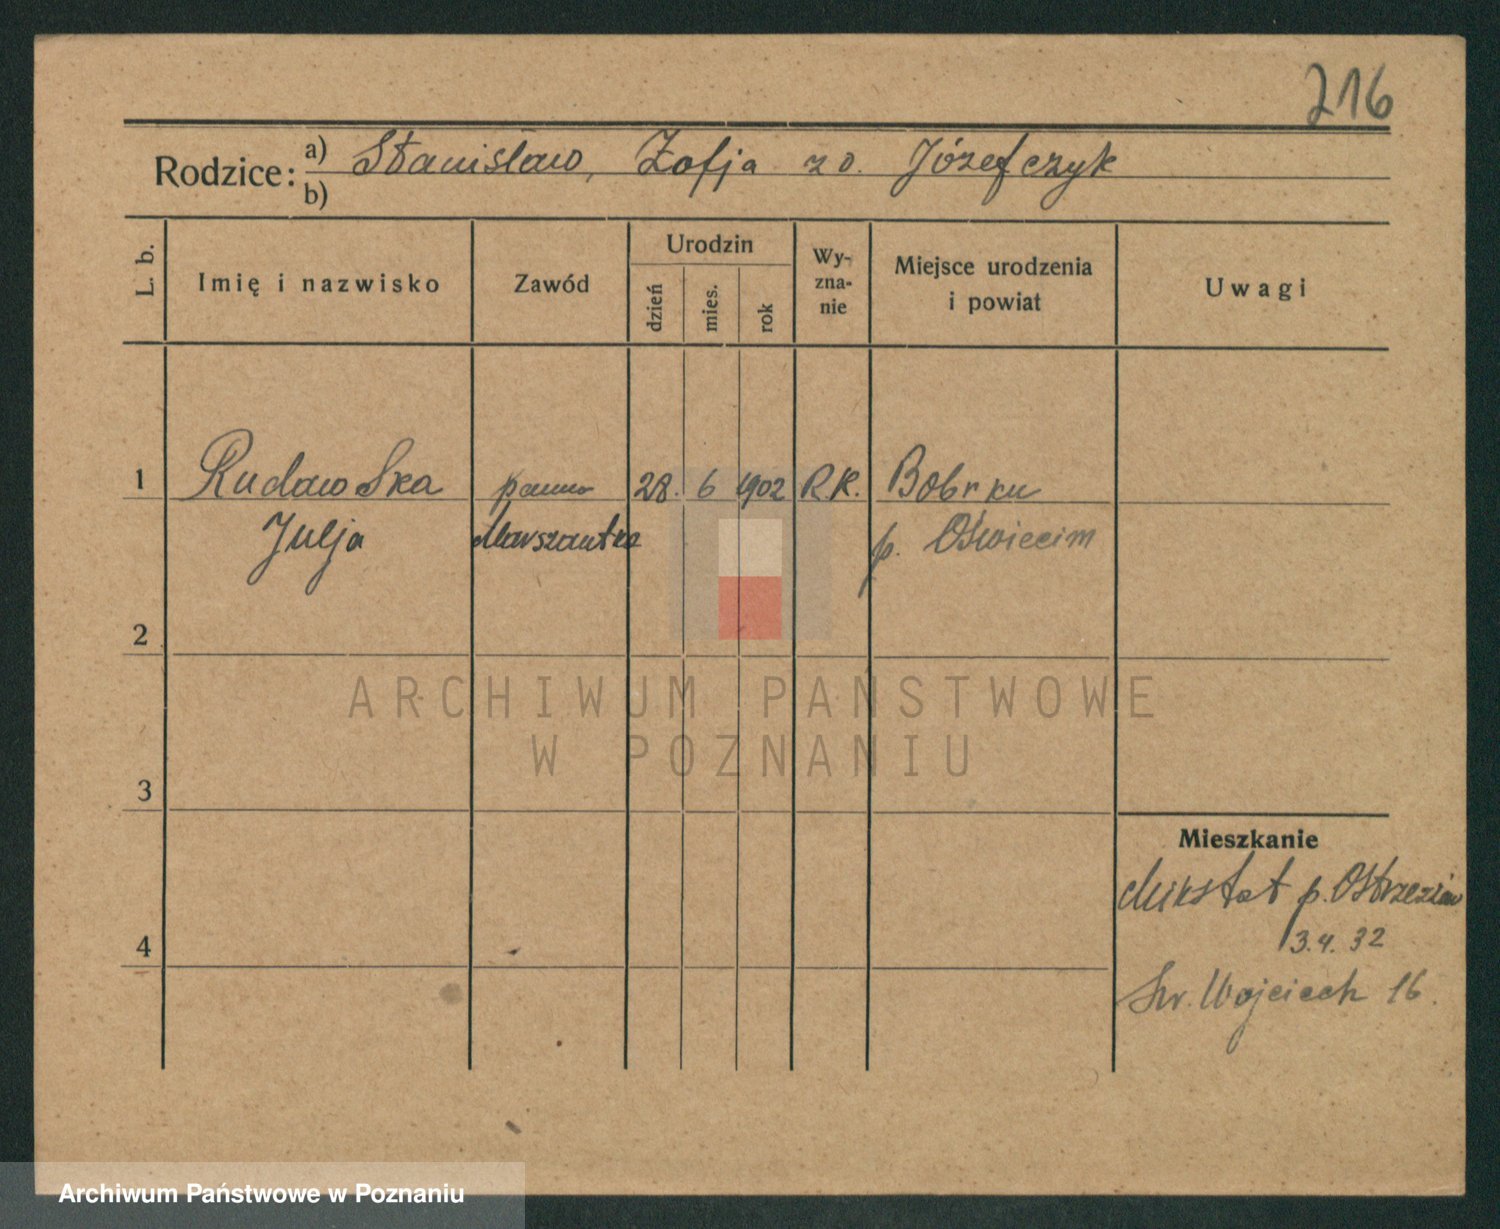 216
Rodzice: a) Stanisław, Zofja z d. Józefczyk
b)
L. b. Imię i nazwisko Zawód Urodzin dzień mies. rok Wy-zna-nie Miejsce urodzenia i powiat Uwagi
1 Rudawska panna 28. 6 902 R.K. Bobrku
Julja p. Oświecim
2
ARCHIWUM PAŃSTWOWE
W POZNANIU
3
Mieszkanie
Mikstat p.
4 3.4. 32
Św. Wojciech 16.
Archiwum Państwowe w Poznaniu